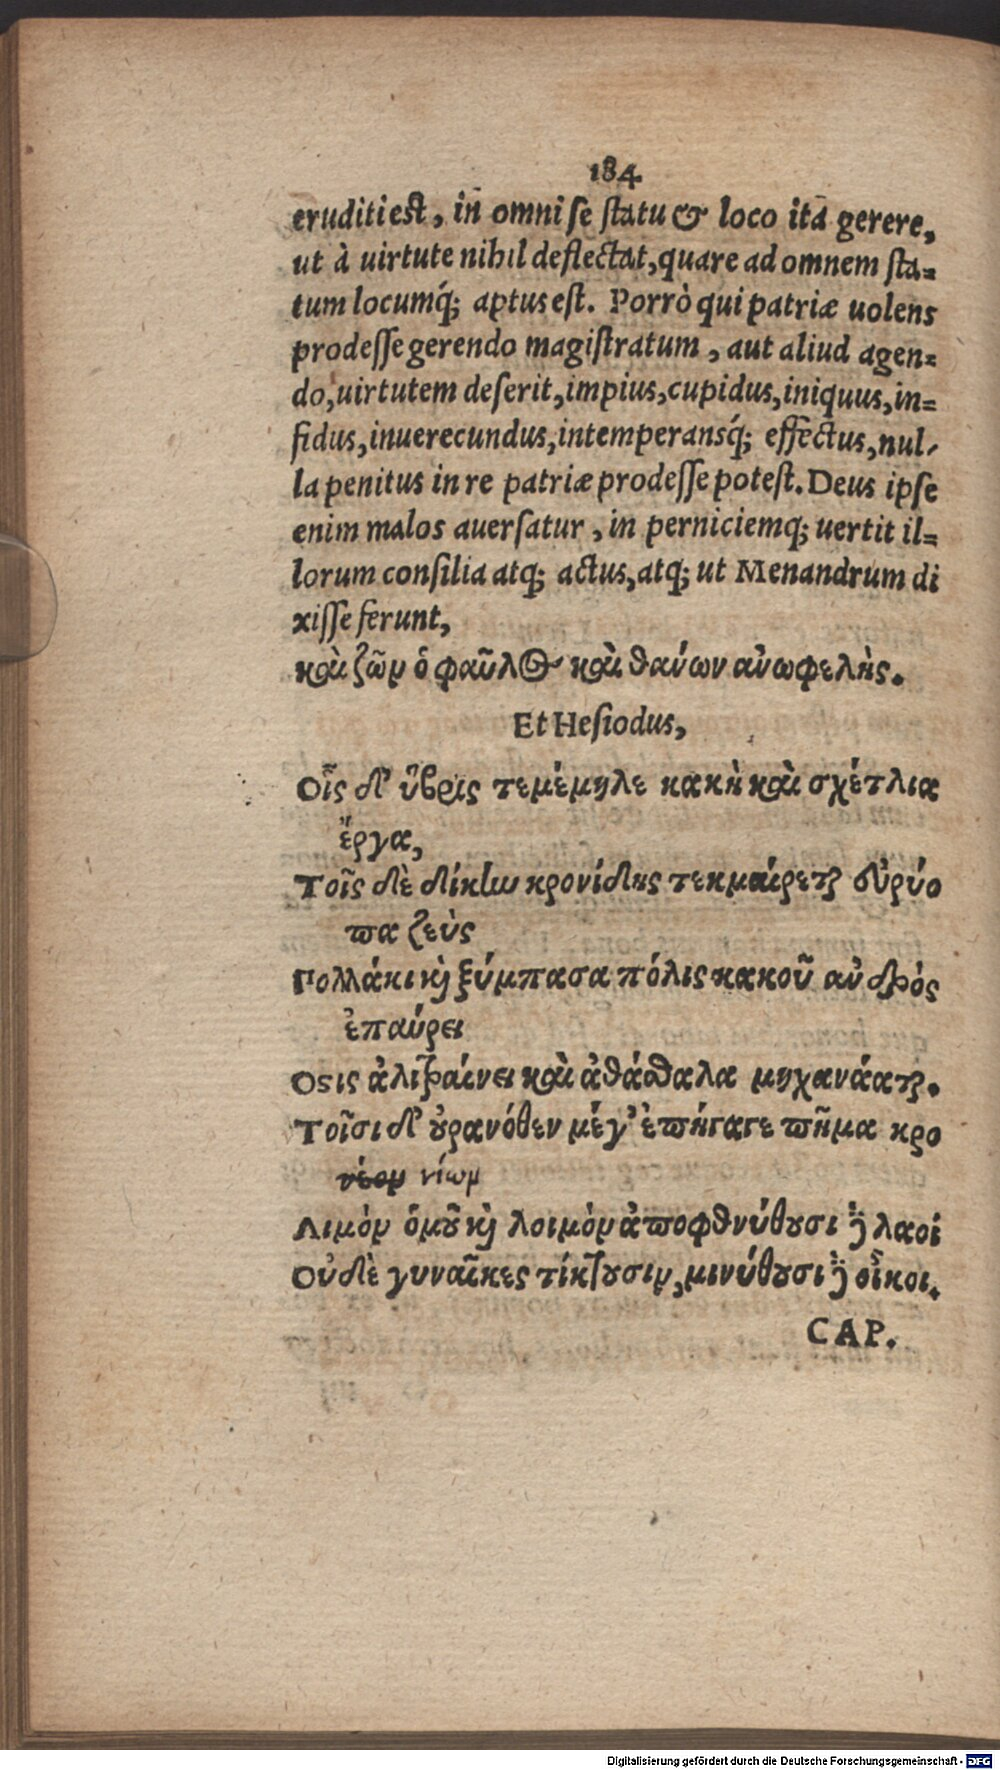 184
eruditi est, in omni se statu & loco ita gerere,
ut à uirtute nihil deflectat, quare ad omnem sta=
tum locumq́; aptus est. Porrò qui patriæ uolens
prodesse gerendo magistratum, aut aliud agen=
do, uirtutem deserit, impius, cupidus, iniquus, in=
fidus, inuerecundus, intemperansq́; effectus, nul-
la penitus in re patriæ prodesse potest. Deus ipse
enim malos auersatur, in perniciemq; uertit il=
lorum consilia atq; actus, atq; ut Menandrum di
xisse ferunt,
καὶ ζῶν ὁ φαῦλος καὶ θανών ἀνωφελὴς.
Et Hesiodus,
Οἷς δ' ὕβρις τεμέμηλε κακὴ καὶ σχέτλια
ἔργα,
Τοῖς δὲ δίκην κρονίδης τεκμαίρεται εὐρύο
πα ζεὺς
Πολλάκι καὶ ξύμπασα πόλις κακοῦ ἀνδρός
ἐπαύρει
Οστις ἀλιτραίνει καὶ ἀτάσθαλα μηχανάαται.
Τοῖσι δ' οὐρανόθεν μέγ' ἐπήγαγε πῆμα κρο
νέον νίων
Λιμὸν ὁμοῦ καὶ λοιμὸν ἀποφθνύθουσι δὲ λαοί
Οὐδὲ γυναῖκες τίκτουσιν, μινύθουσι δὲ οἶκοι.
CAP.
Digitalisierung gefördert durch die Deutsche Forschungsgemeinschaft - DFG